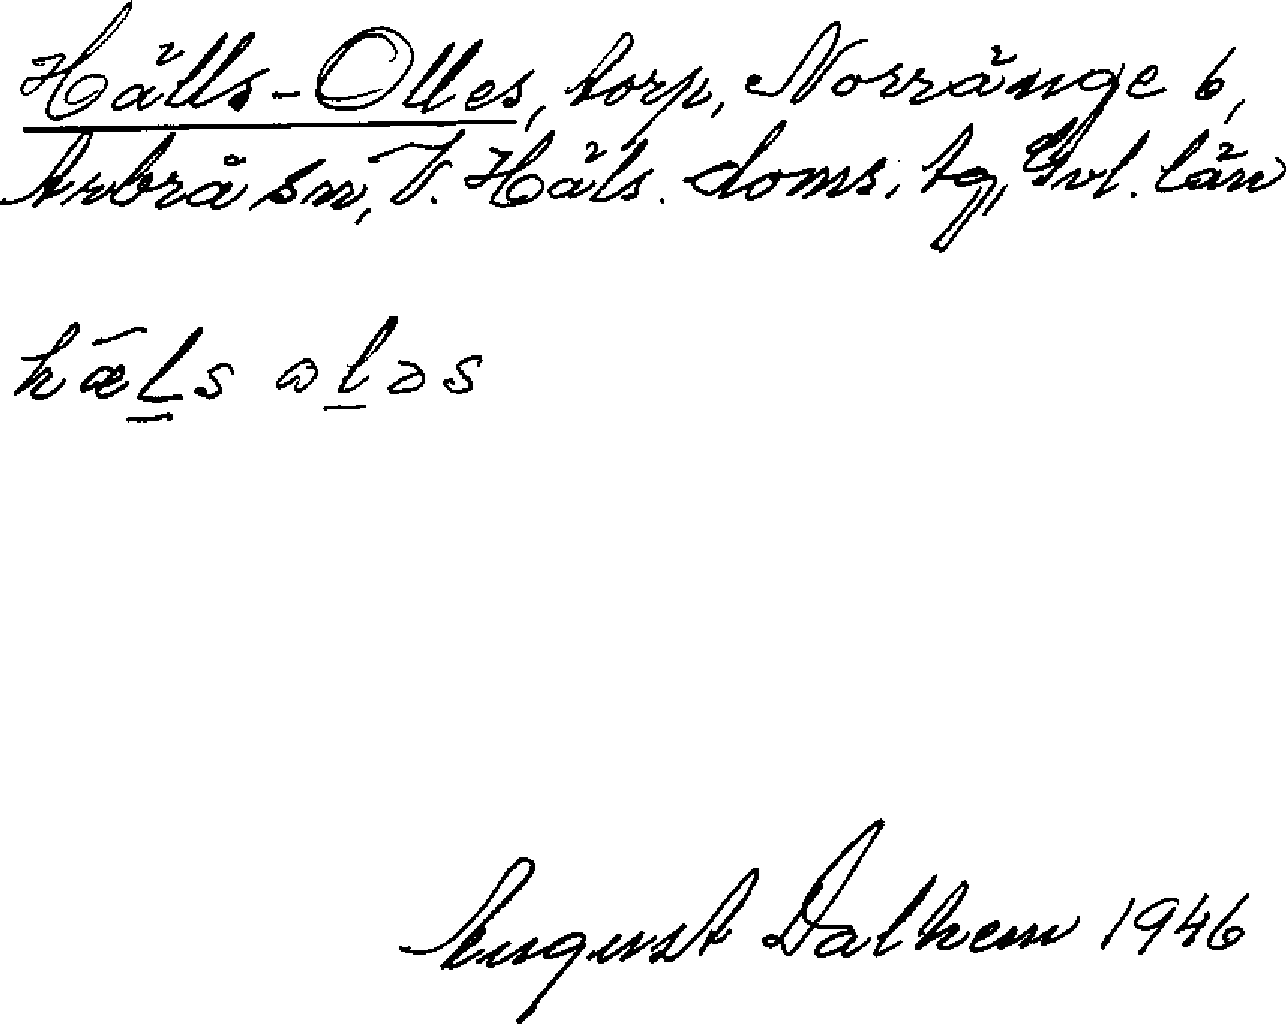 Hälls-Olles, torp, Norränge 6,
Arbrå sn, V. Häls. doms. tg, Gvl. län
hæls ɷləs
August Dalhem 1946